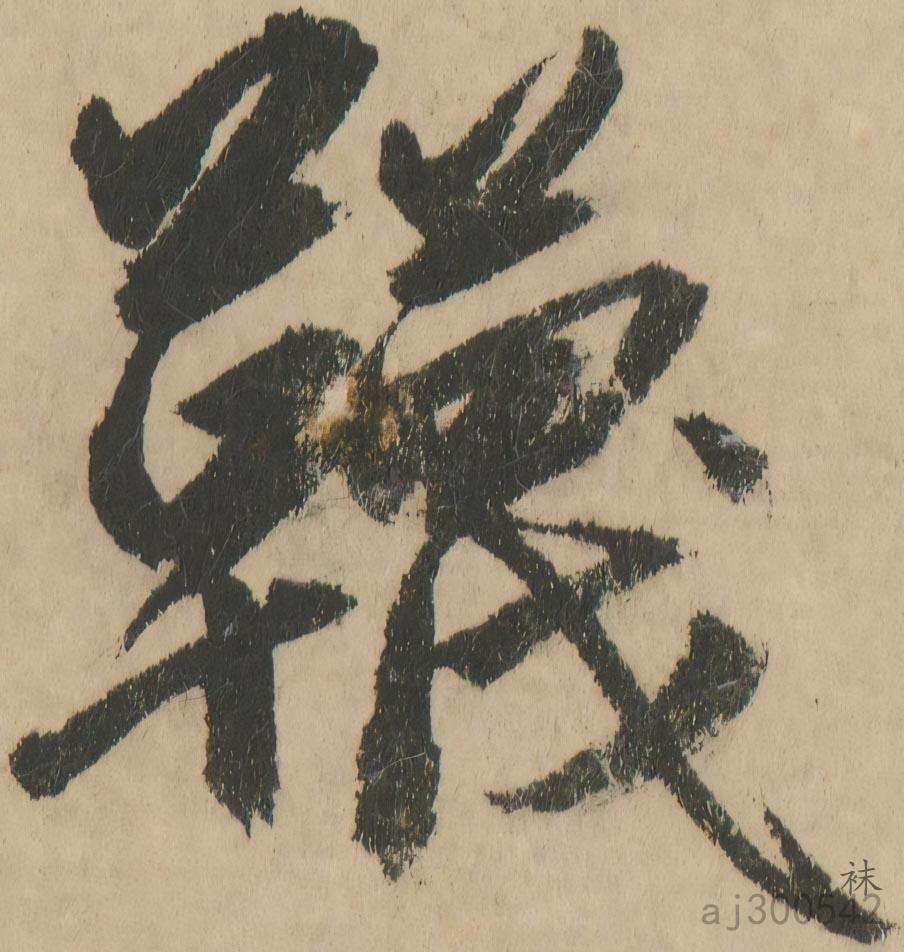 韈
袜
aj300542